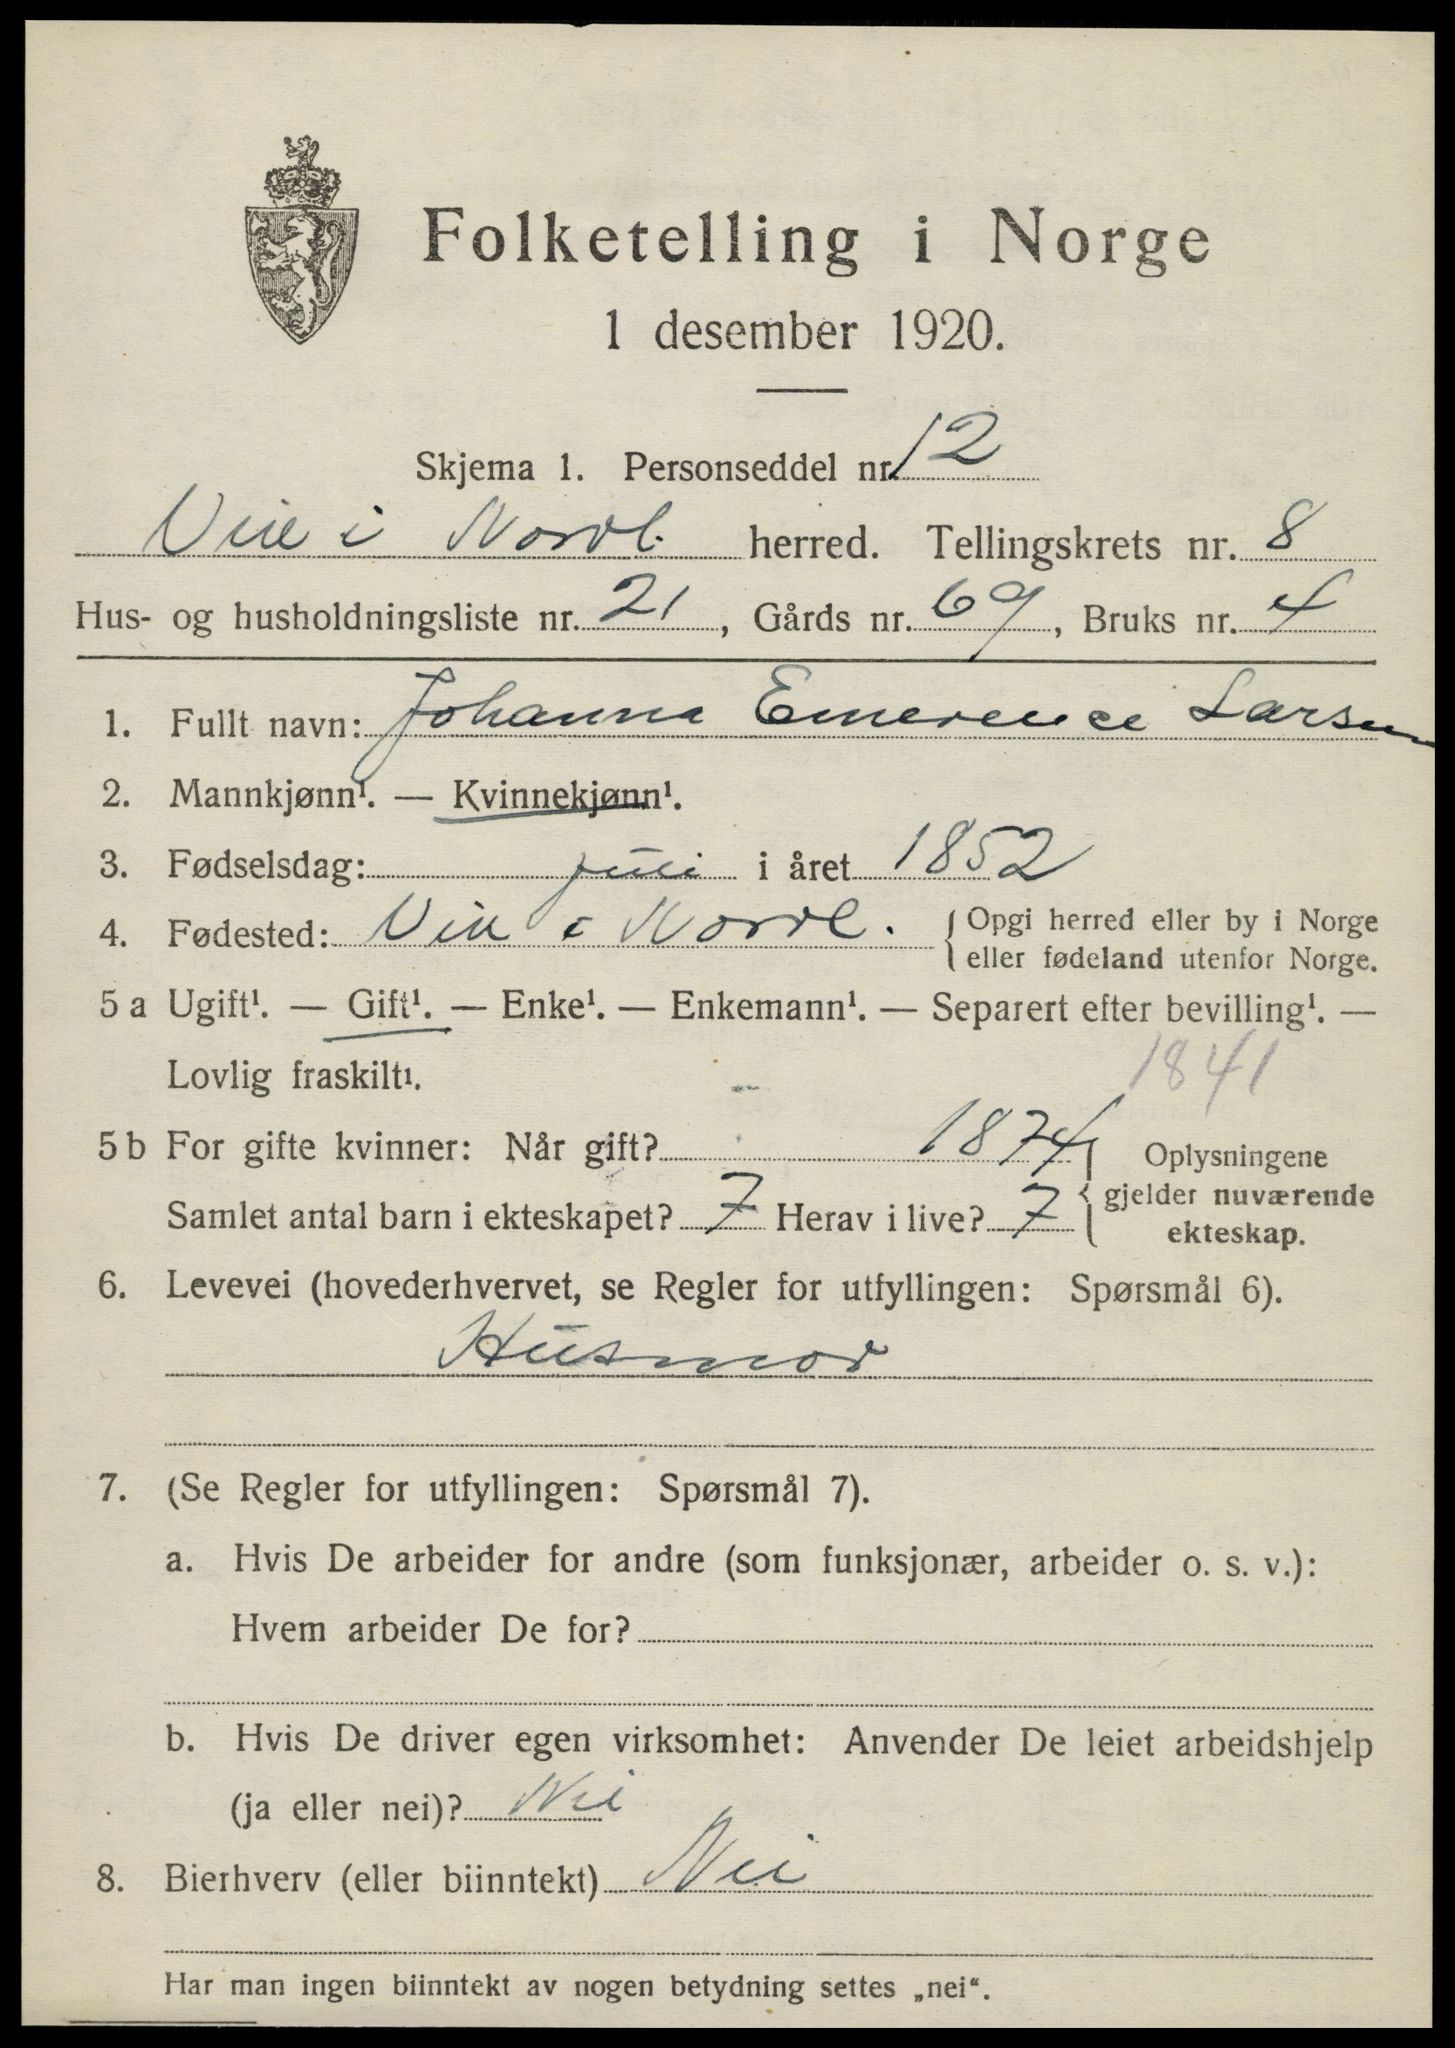 Folketelling i Norge
1 desember 1920.
Skjema 1. Personseddel nr. 12
i Nordl. herred. Tellingskrets nr. 8
Hus- og husholdningsliste nr. 21, Gårds nr. 69, Bruks nr. 4
1. Fullt navn: Johanna Emerence Larsen
2. Mannkjønn¹. — Kvinnekjønn¹.
3. Fødselsdag: juli i året 1852
4. Fødested: i Nordl. { Opgi herred eller by i Norge
eller fødeland utenfor Norge.
5 a Ugift¹. — Gift¹. — Enke¹. — Enkemann¹. — Separert efter bevilling¹. —
Lovlig fraskilt¹. 1841
5 b For gifte kvinner: Når gift? 1874 Oplysningene
Samlet antal barn i ekteskapet? 7 Herav i live? 7 { gjelder nuværende
ekteskap.
6. Levevei (hovederhvervet, se Regler for utfyllingen: Spørsmål 6).
Husmor
7. (Se Regler for utfyllingen: Spørsmål 7).
a. Hvis De arbeider for andre (som funksjonær, arbeider o. s. v.):
Hvem arbeider De for?
b. Hvis De driver egen virksomhet: Anvender De leiet arbeidshjelp
(ja eller nei)? Nei
8. Bierhverv (eller biinntekt) Nei
Har man ingen biinntekt av nogen betydning settes „nei“.